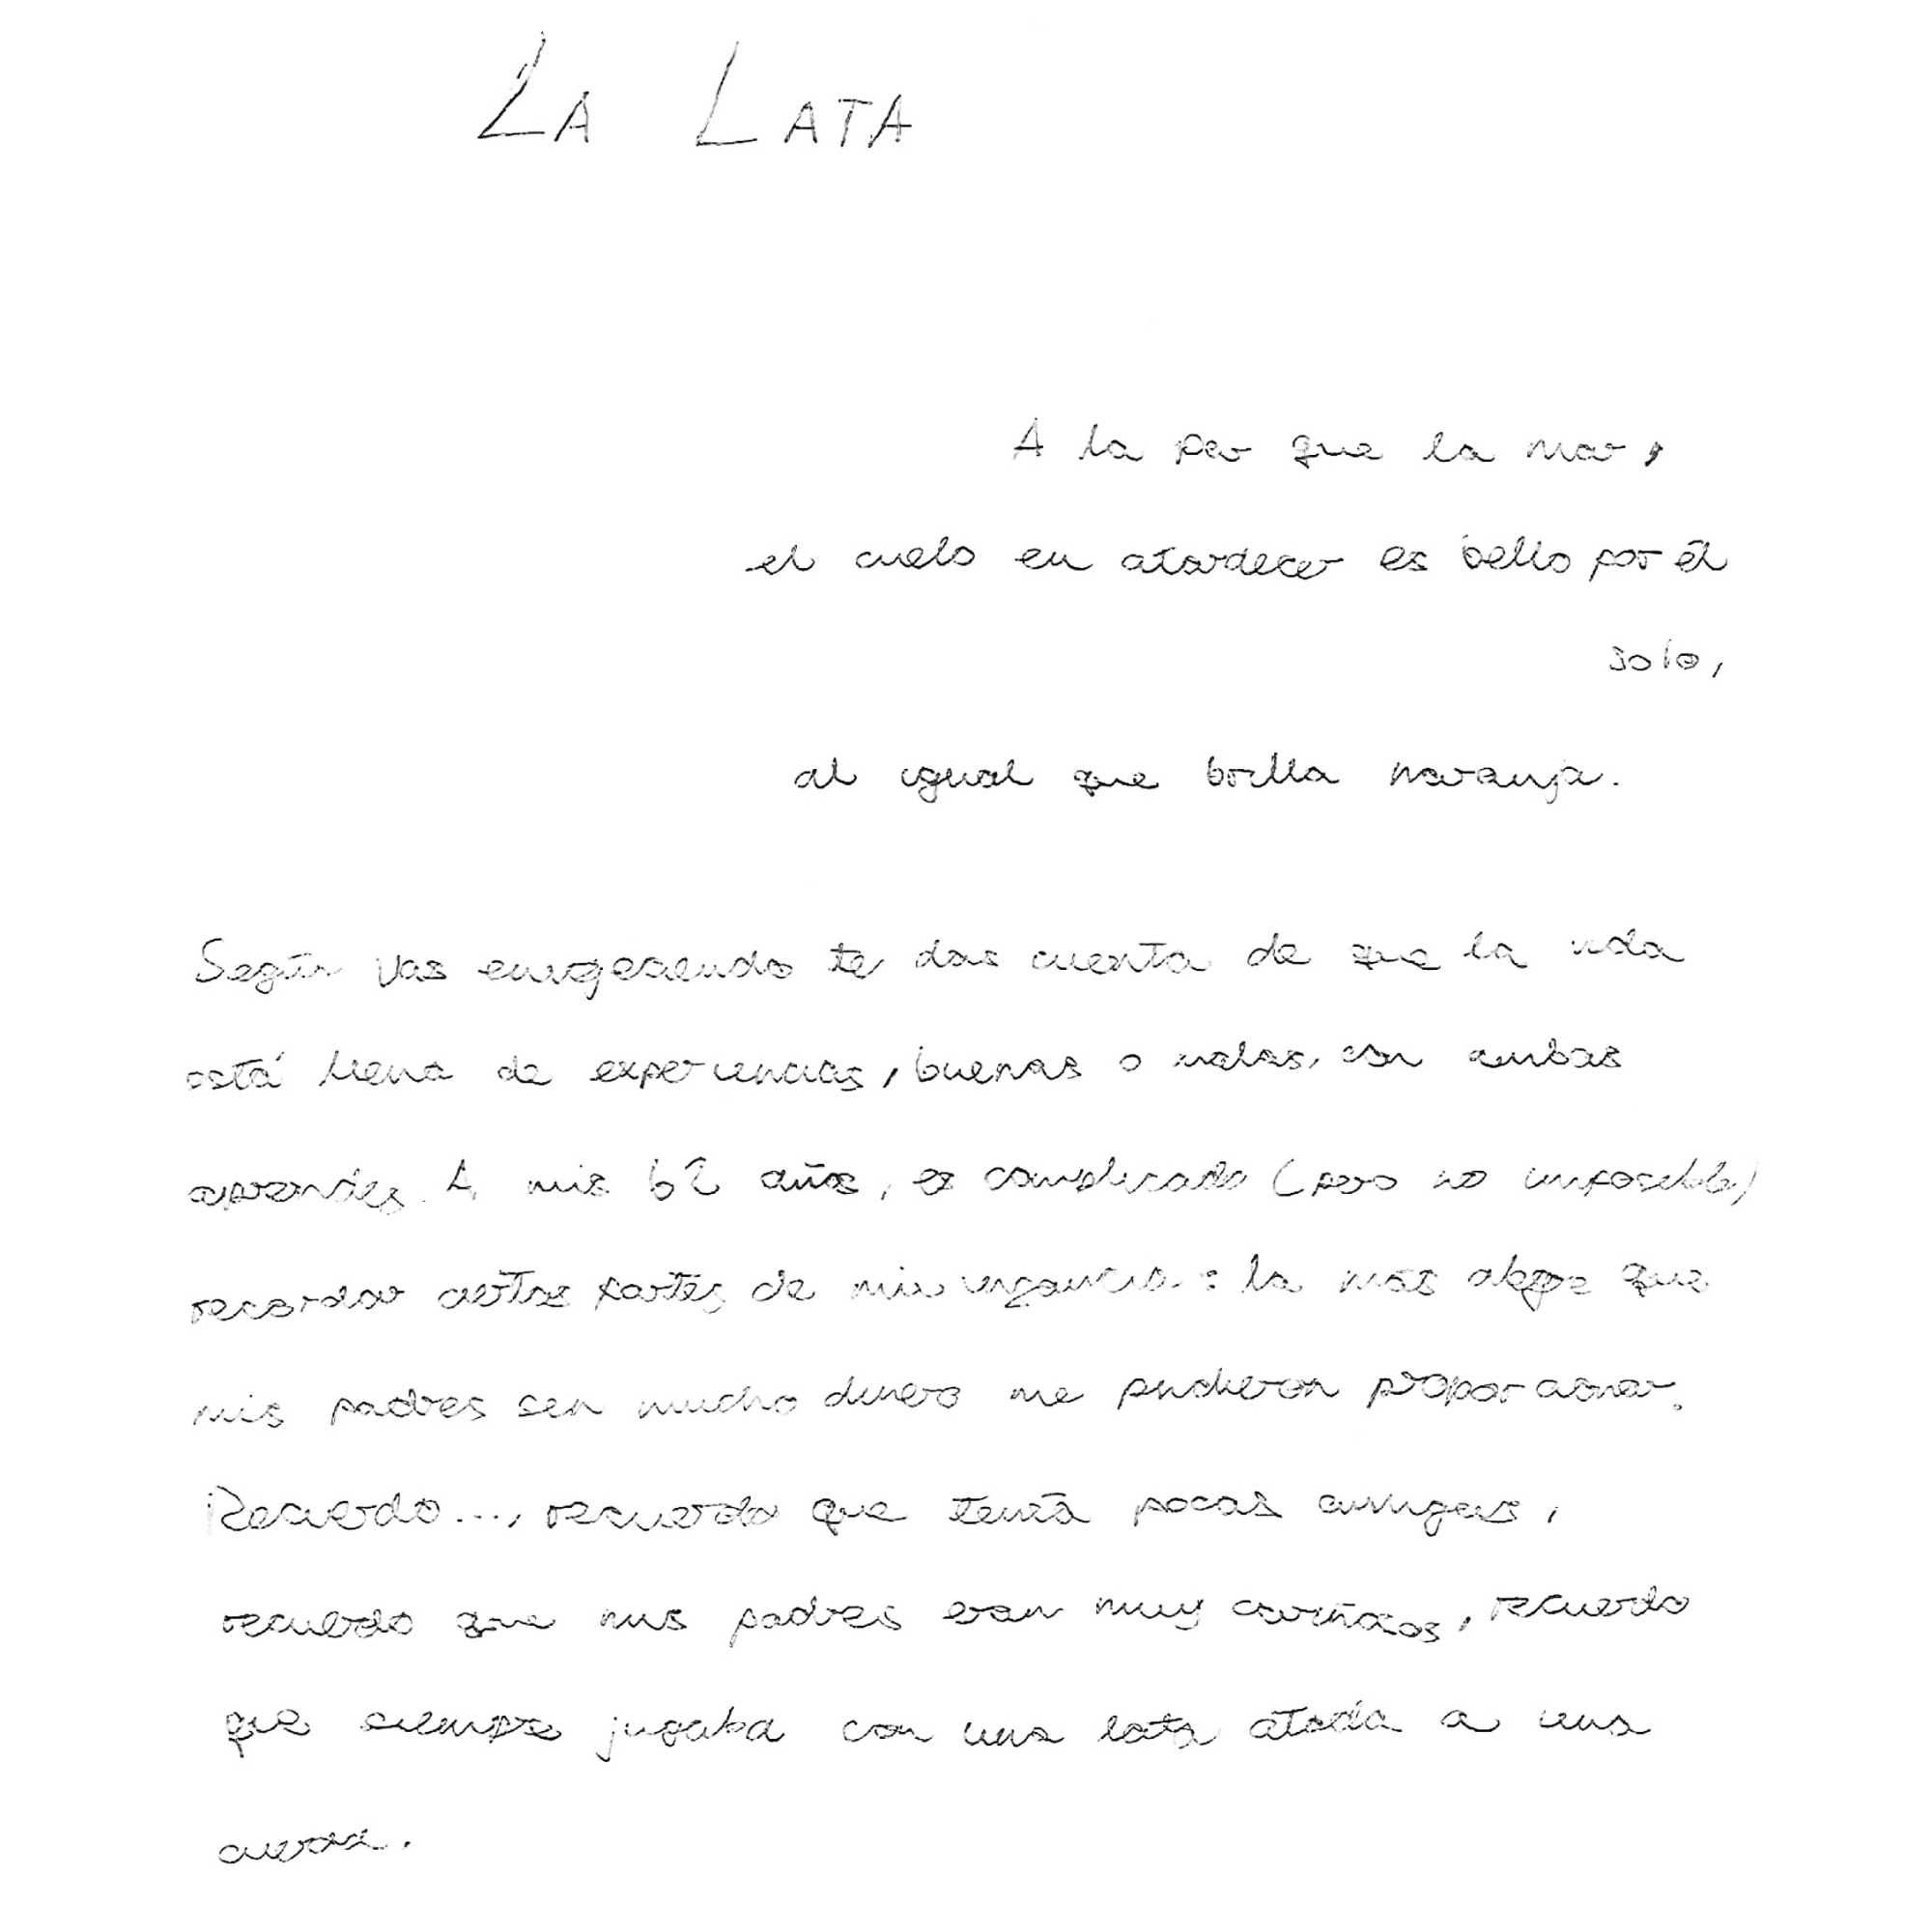 LA LATA
A la par que la mar,
el cielo en atardecer es bello por él
solo,
al igual que brilla naranja.
Según vas envejeciendo te das cuenta de que la vida
está llena de experiencias, buenas o malas, con ambas
aprendes. A mis 62 años, es complicado (pero no imposible)
recordar ciertas partes de mi infancia: la más alegre que
mis padres sin mucho dinero me pudieron proporcionar.
Recuerdo..., recuerdo que tenía pocas amigas,
recuerdo que mis padres eran muy cariñosos, recuerdo
que siempre jugaba con una lata atada a una
cuerda.